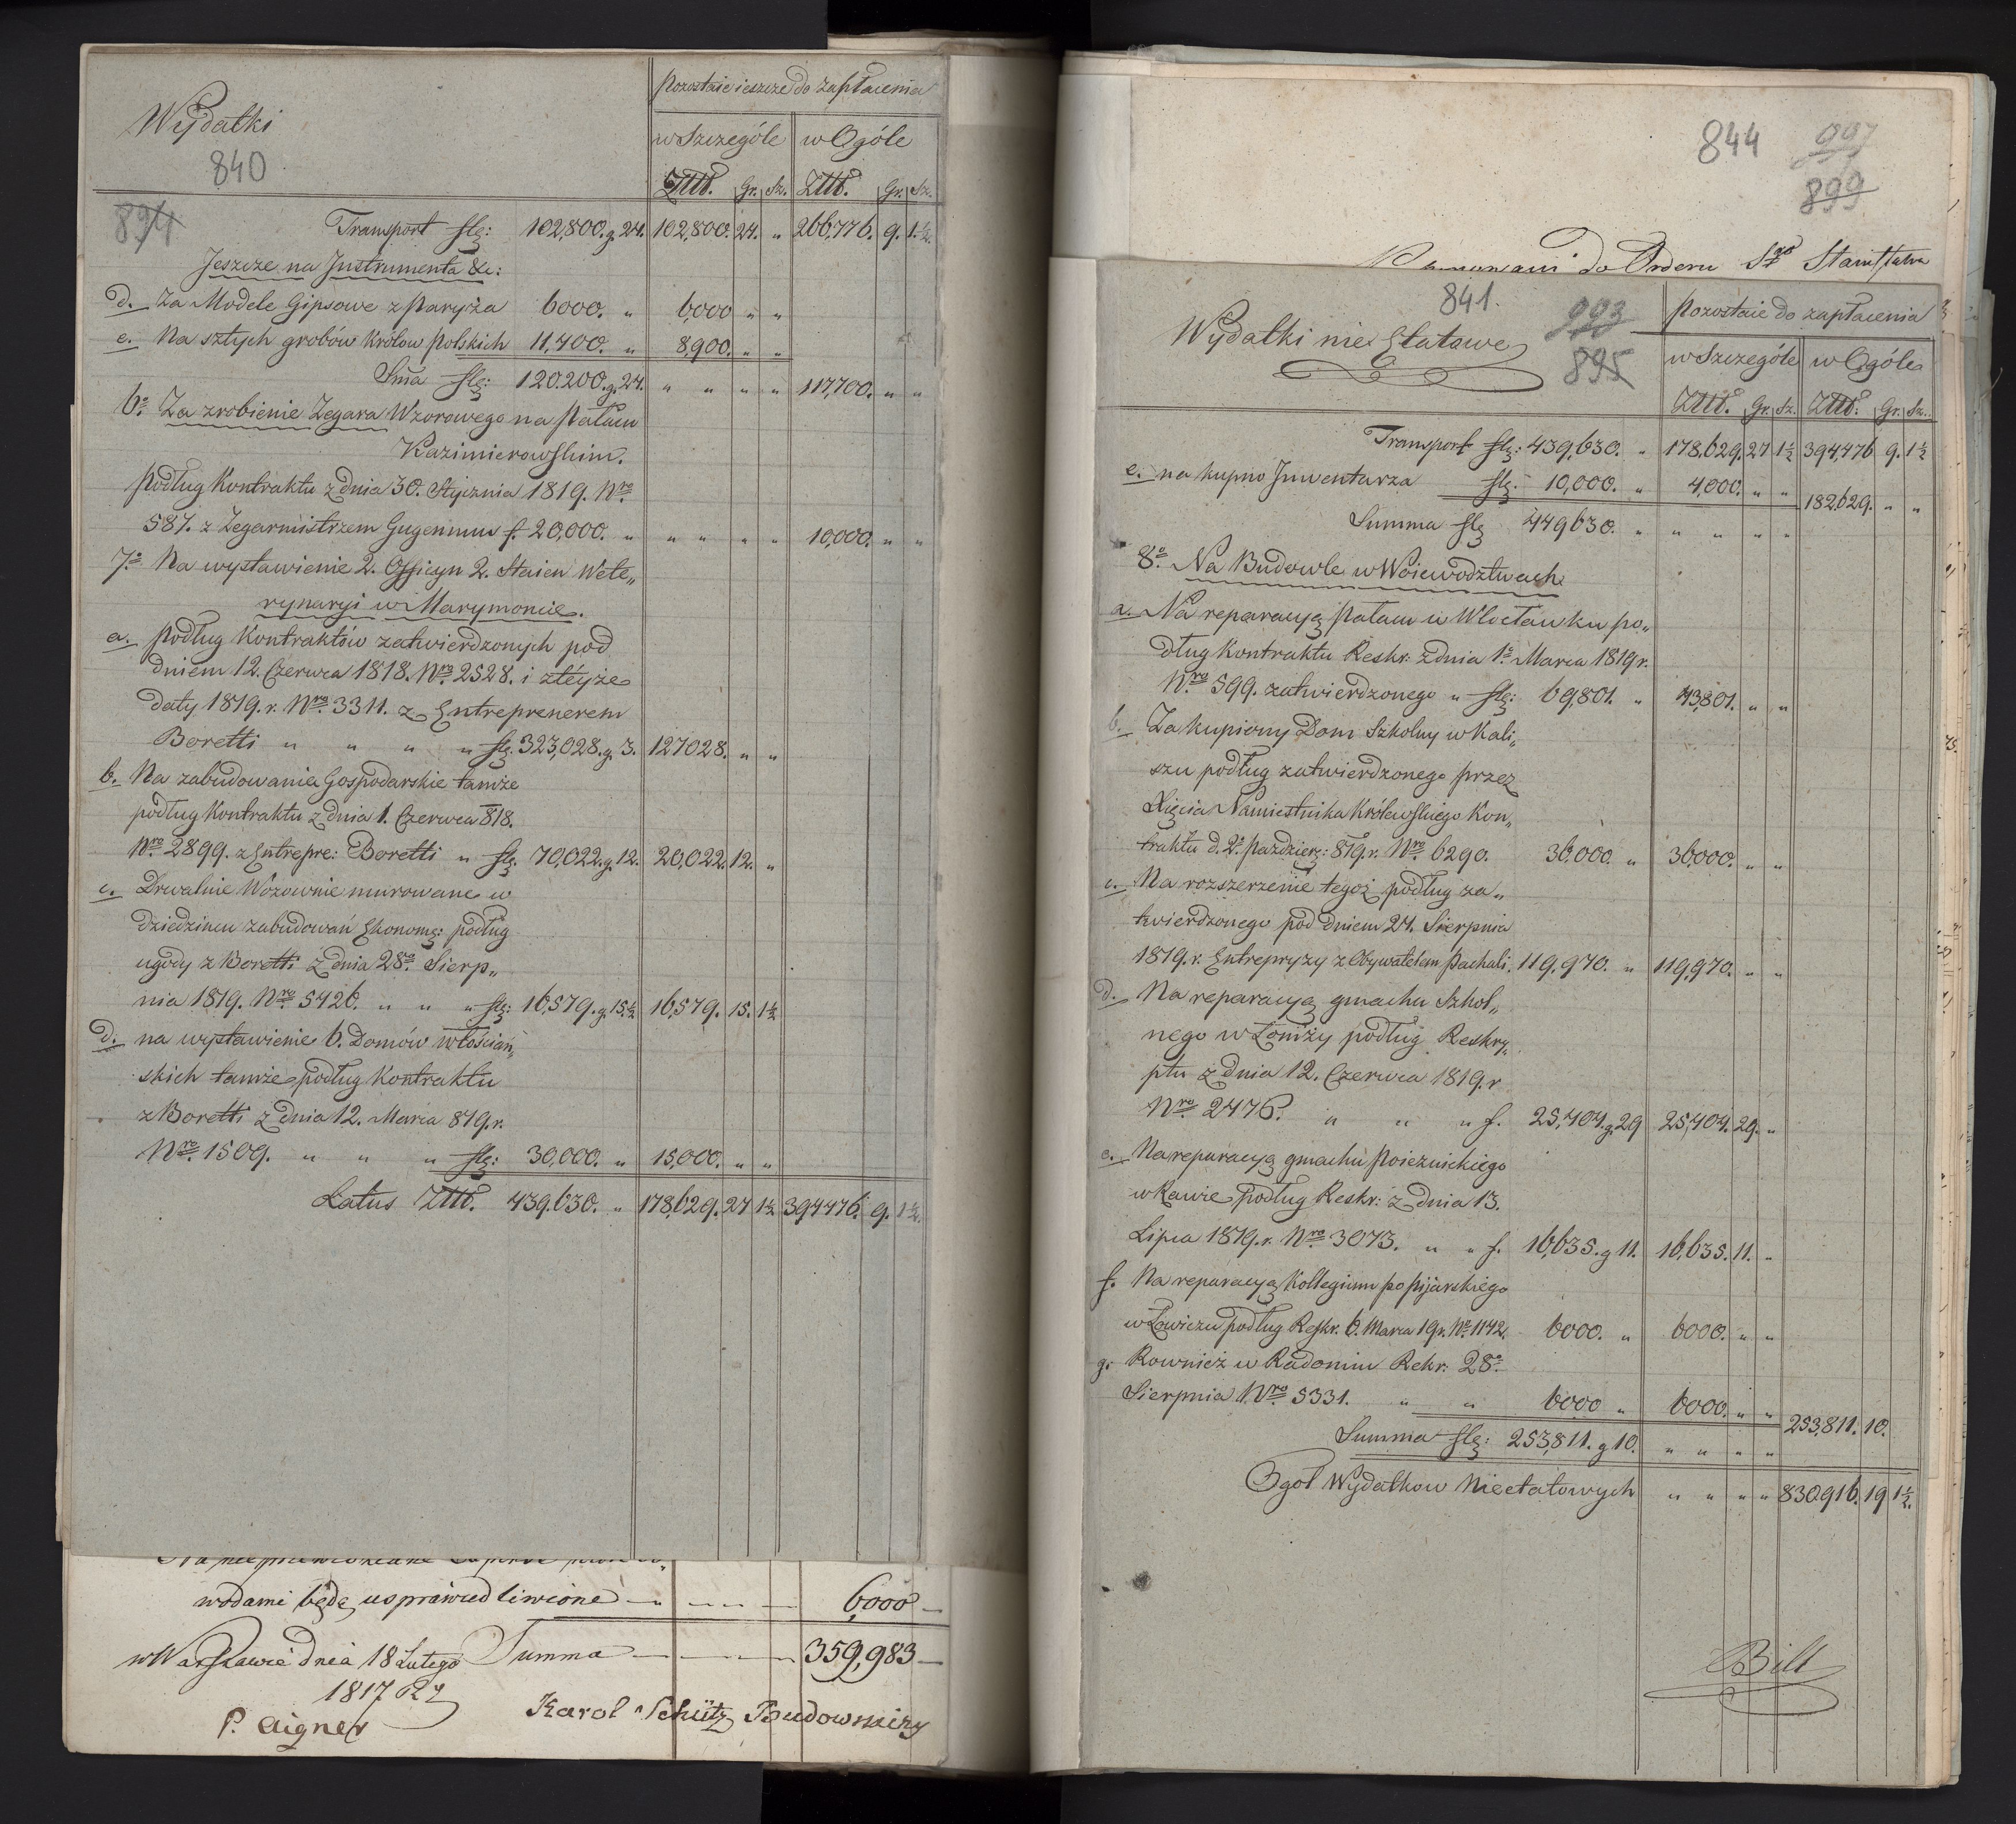 Wydatki
840
894
Pozostaie ieszcze do zapłacenia
w Szczególe w Ogóle
Złłł. Gr. Sz. Złłł. Gr. Sz.
Transport flę: 102,800. g. 24. 102,800. 24. " 266,776. 9. 1 1/2.
Jeszcze na Instrumenta &c:
d. Za Modele Gipsowe z Paryża 6000. " 6,000 " "
e. Na sztych grobów Królow Polskich 11,400. " 8,900. " "
Sũa flę: 120200. g. 24. " " " " 117,700. " "
6o. Za zrobienie Zegara Wzorowego na Pałacu
Kazimierowskim.
podług Kontraktu z dnia 30. Stycznia 1819. Nro
587. z Zegarmistrzem Gugenmus f. 20,000. " " " " " 10,000. " "
7o. Na wystawienie 2. Officyn 2. Staien Wete„
rynaryi w Marymoncie.
a. podług Kontraktów zatwierdzonych pod
dniem 12. Czerwca 1818. Nro 2528. i z téyże
daty 1819. r. Nro 3311. z Entreprenerem
Boretti " " " " flę. 323,028. g. 3. 127028. " "
b. Na zabudowania Gospodarskie tamże
podług Kontraktu z dnia 1. Czerwca 818.
Nro 2899. z Entrepre: Boretti " flę. 70,022. g. 12. 20,022. 12. "
c. Drwalnie Wozownie murowane w
dziedzincu zabudowań Ekonomę: podług
ugody z Boretti z dnia 28o. Sierp„
nia 1819. Nro 5426. " " " flę: 16,579. g. 15 1/2 16,579. 15. 1 1/2
d. na wystawienie 6. Domów włościań„
skich tamże podług Kontraktu
z Boretti z dnia 12. Marca 819. r.
Nro 1509. " " " flę: 30,000. " 15,000. " "
Latus Złłł. 439.630. " 178,629. 27 1 1/2 394476. 9. 1 1/2.
wodami będą usprawiedliwione 6,000
w Warszawie dnia 18 Lutego Summa 359,983
1817 R
P. Aigner Karol Schütz Budowniczy
844 997
899
do Orderu Sgo Stanisława
841.
993
895
Wydatki nie Etatowe
Pozostaie do zapłacenia
w Szczególe w Ogóle
Złłł. Gr. Sz. Złłł. Gr. Sz.
Transport flę: 439,630. " 178,629. 27 1 1/2 394,476 9. 1 1/2
e. na kupno Inwentarza flę. 10,000. " 4,000. " " 182629. " "
Summa flę 449630. " " " " "
8o. Na Budowle w Woiewodztwach
a. Na reparacyą Pałacu w Włocławku po„
dług Kontraktu Reskr: z dnia 1o. Marca 1819 r.
Nro 599. zatwierdzonego " flę: 69,801. " 43,801. " "
b. Za kupiony Dom Szkolny w Kali„
szu podług zatwierdzonego przez
Xięcia Namiestnika Królewskiego Kon„
traktu d. 2o. Paździer: 819. r. Nro 6290. 36,000. " 36,000. " "
c. Na rozszerzenie tegoż podług za„
twierdzonego pod dniem 24. Sierpnia
1819. r. Entrepryzy z Obywatelem Pachali. 119,970. " 119,970. " "
d. Na reparacyą gmachu Szkol„
nego w Łomży podług Reskry„
ptu z dnia 12. Czerwca 1819. r
Nro 2476. " " " f. 25,404. g. 29 25,404. 29. "
e. Na reparacyą gmachu Poiezuickiego
w Rawie podług Reskr: z dnia 13.
Lipca 1819. r. Nro 3073. " " f. 16,635. g 11. 16,635. 11. "
f. Na reparacyą Kollegium po pijarskiego
w Łowiczu podług Reskr. 6. Marca 19 r. No 1142. 6000. " 6000. " "
g. Rownież w Radomiu Rekr: 28o.
Sierpnia Nro 5331. " " 6000 " 6000. " " 253,811. 10.
Summa flę: 253,811. g 10. " " " "
Ogół Wydatkow Nieetatowych " " " " 830916. 19 1 1/2.
Bill